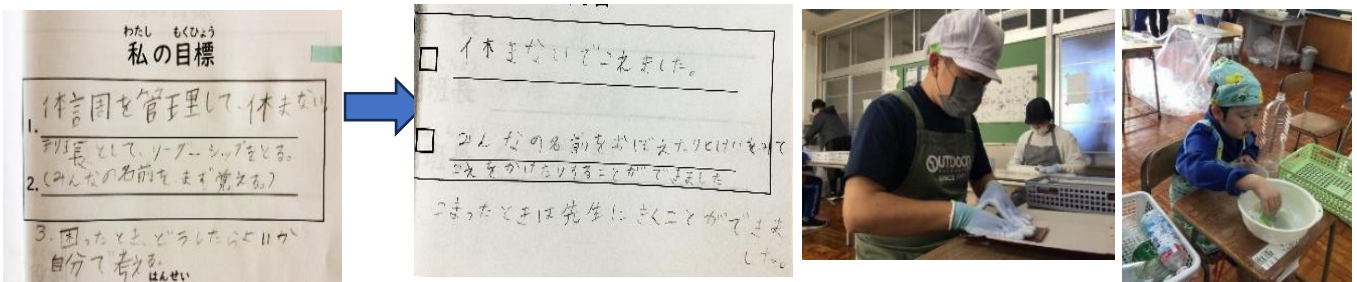 わたし もくひょう
私の目標
1. 体調を管理して、休まない
班長として、リーダーシップをとる。
2. (みんなの名前をまず覚える。)
3. 困ったとき、どうしたらよいか
自分で考える。
はんせい
休まないでこえました。
みんなの名前をおぼえたりとけいをみて
こえをかけたりすることができました
こまったときは先生にきくことができま
した。
OUTDOOR